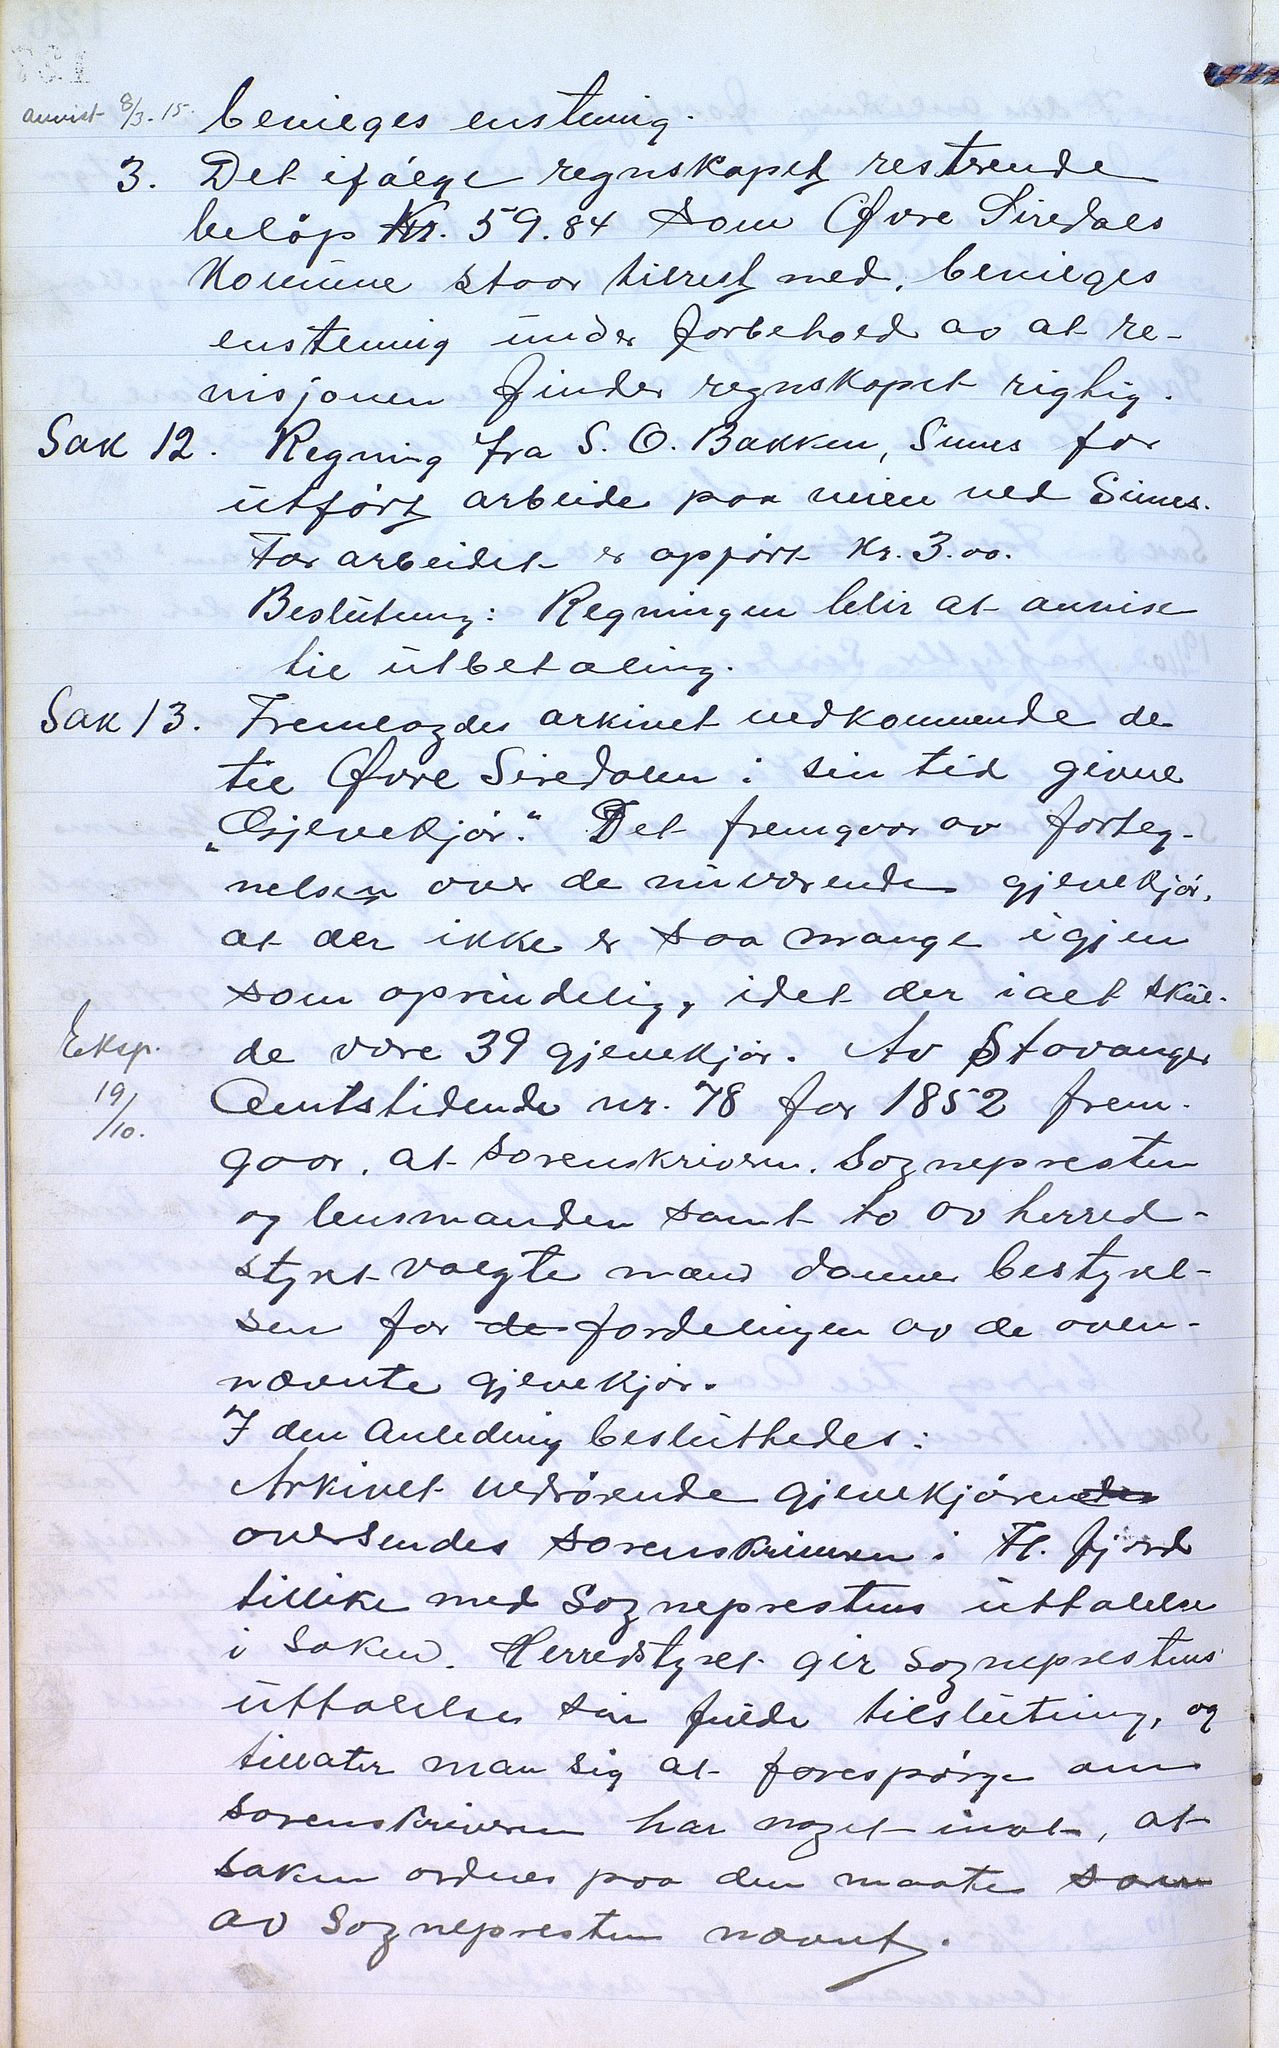 anvist 8/3-15.
bevilges enstemig.
3. Det ifølge regnskapet resterende
beløp Kr. 59.84 som Øvre Siredals
Komune staar tilrest med, bevilges
enstemig under forbehold av at re-
visjonen finder regnskapet rigtig.
Sak 12. Regning fra S. O. Bakken, Sines for
utført arbeide paa veien ved Sines.
For arbeidet er opført Kr. 3.00.
Beslutning: Regningen blir at anvise
til utbetaling.
Sak 13. Fremlagdes arkivet vedkommende de
til Øvre Siredalen i sin tid givne
"Gjevekjør." Det fremgaar av forteg-
nelsen over de nuværende gjevekjør,
at der ikke er saa mange igjen
som oprindelig, idet der ialt skul-
Eksp. de være 39 gjevekjør. Av Stavanger
19/10. Amtstidende nr. 78 for 1852 frem-
gaar, at sorenskriveren, Sognepresten
og lensmanden samt to av herred-
styret valgte mænd danner bestyrel-
sen for de fordelingen av de oven-
nævnte gjevekjør.
I den Anledning besluttedes:
Arkivet vedrørende gjevekjørene
oversendes sorenskriveren i Fl. fjord
tillike med Sogneprestens uttalelse
i saken. Herredstyret gir sogneprestens
uttalelse sin fulde tilslutning, og
tillater man sig at forespørge om
sorenskriveren har noget imot, at
saken ordnes paa den maate som
av Sognepresten nævnt.